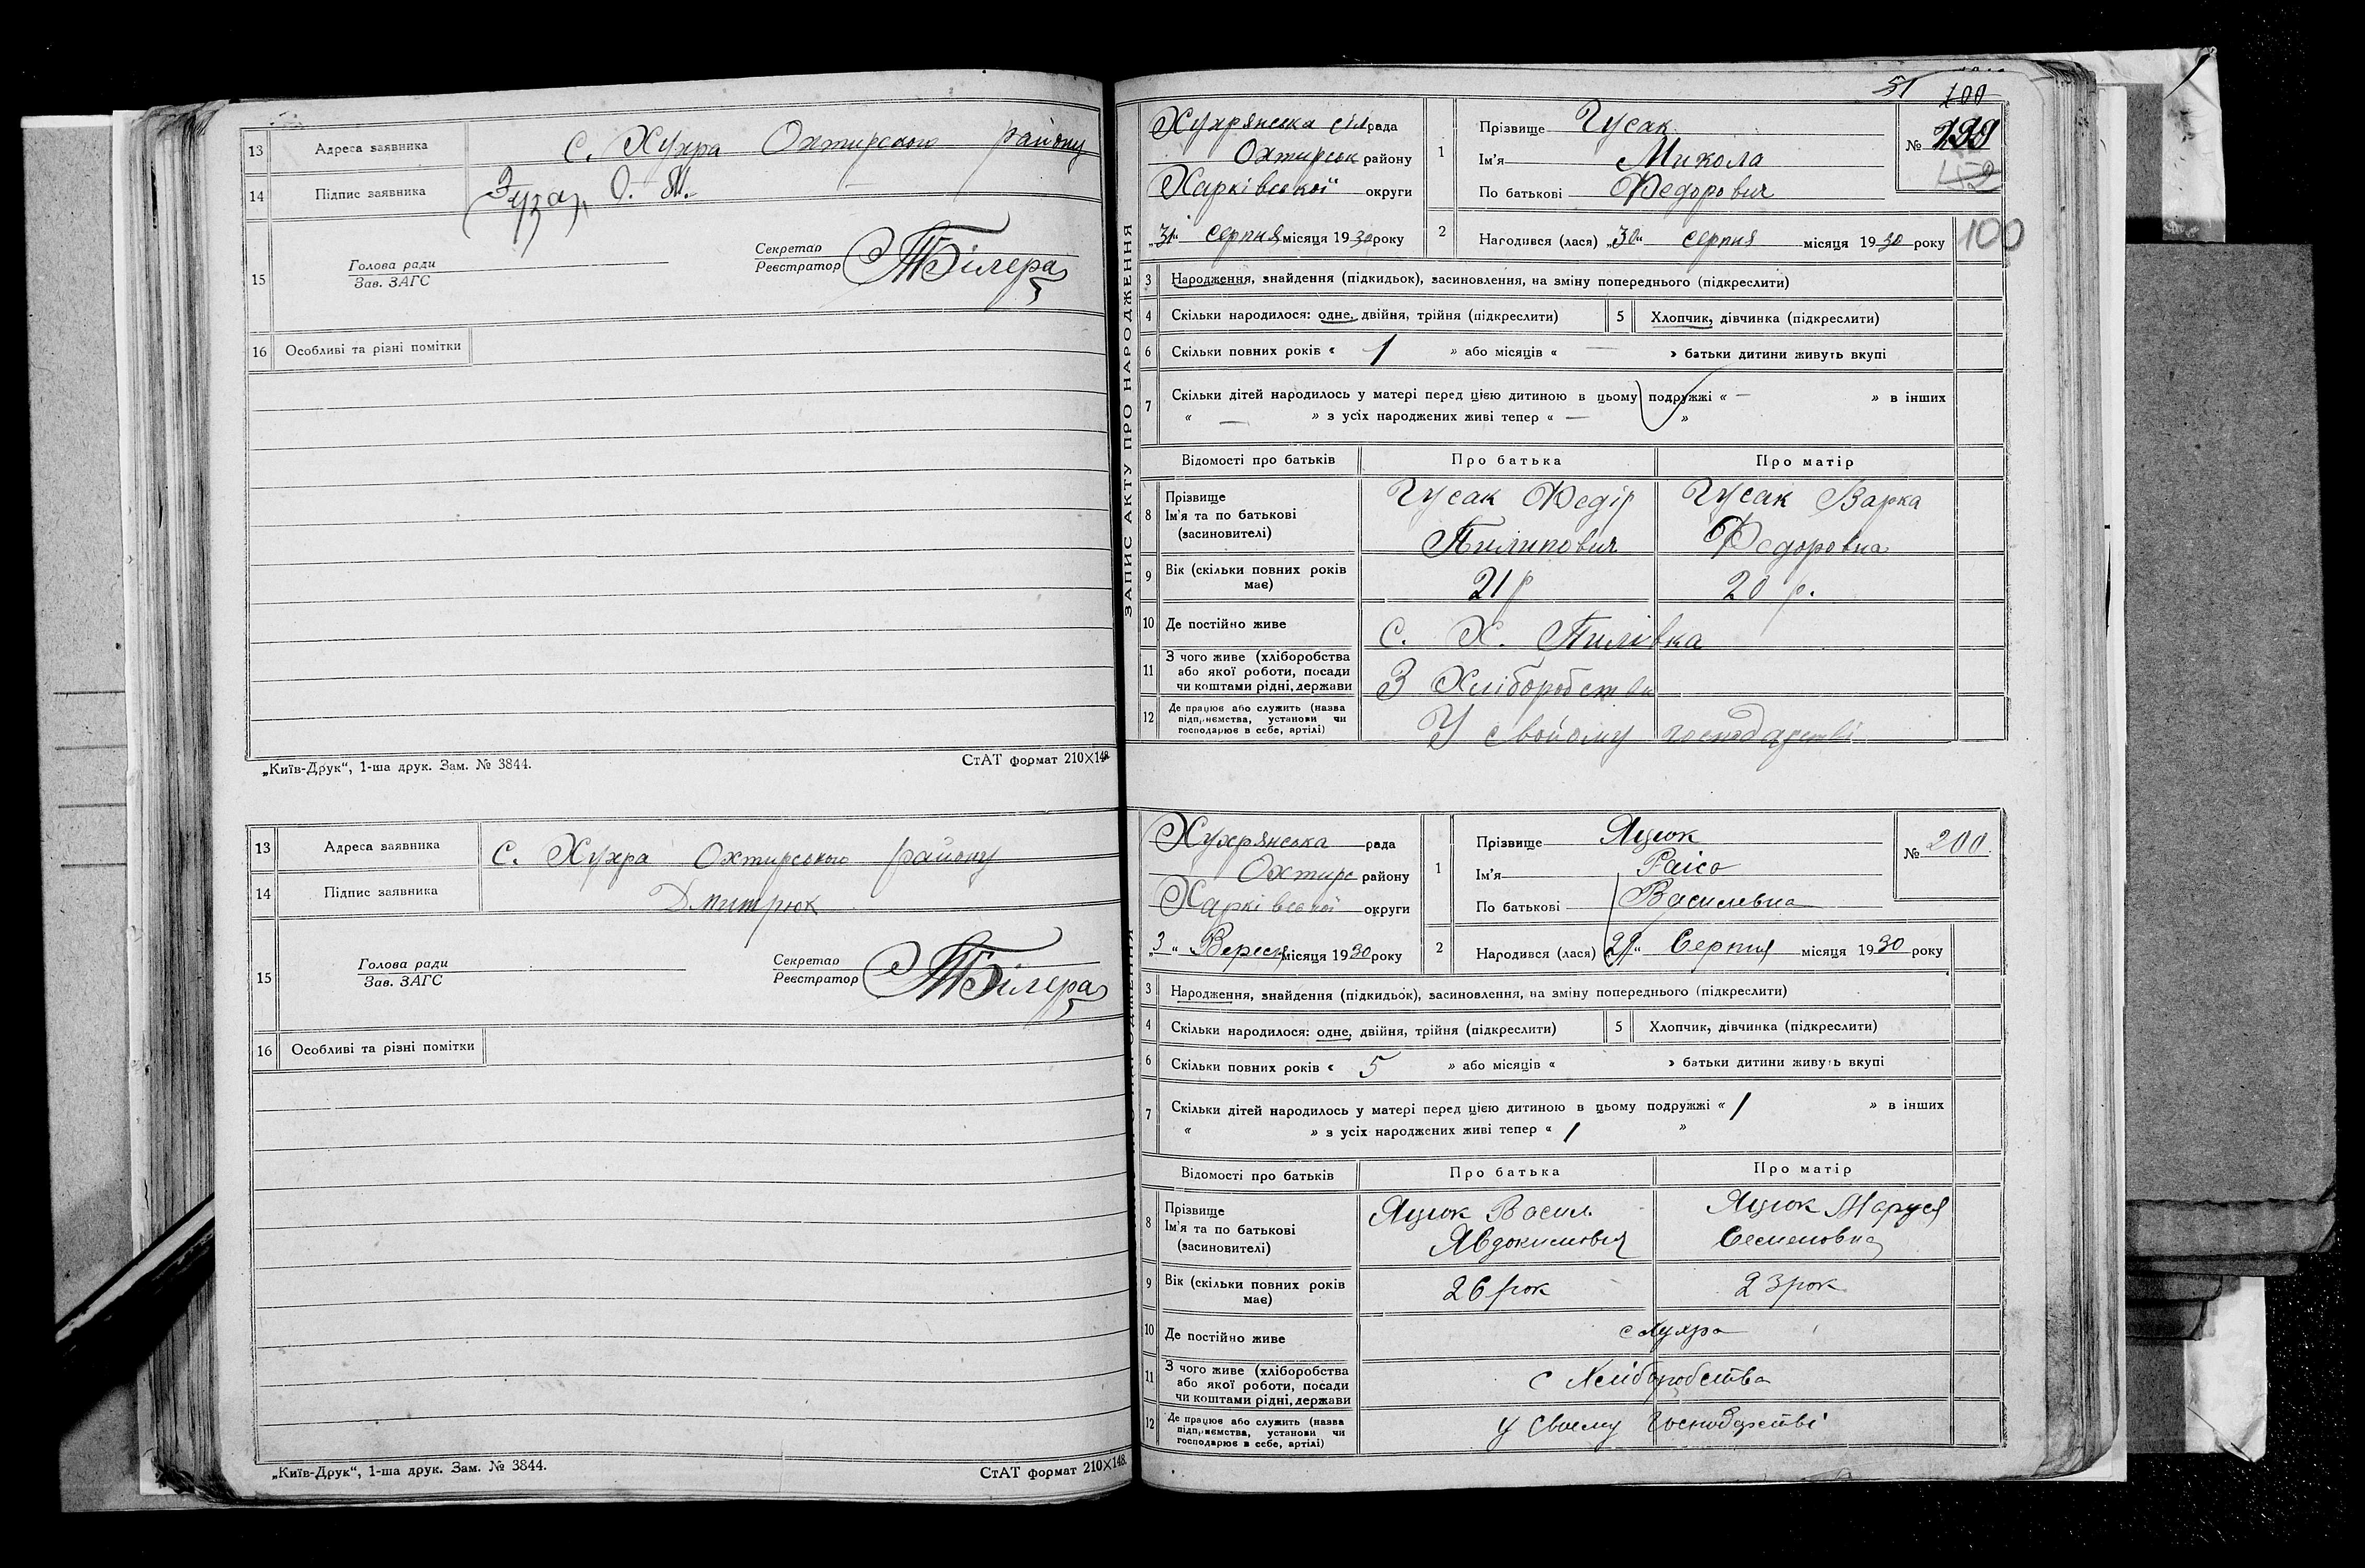 13 Адреса заявника с. Хухра Охтирського району
14 Підпис заявника
15 Голова ради
Зав. ЗАГС
Секретар
Реєстратор Т Білера
16 Особливі та різні помітки
„Київ-Друк“, 1-ша друк. Зам. № 3844. СтАТ формат 210×148
13 Адреса заявника с. Хухра Охтирського району
14 Підпис заявника Дмитрюк
15 Голова ради
Зав. ЗАГС
Секретар
Реєстратор Т Білера
16 Особливі та різні помітки
„Київ-Друк“, 1-ша друк. Зам. № 3844. СтАТ формат 210×148.
51 100
ЗАПИС АКТУ ПРО НАРОДЖЕННЯ
Хухрянська сіл рада
Охтирськ району
Харківської округи
„31“ серпня місяця 1930 року
1 Прізвище Гусак
Ім'я Микола
По батькові Федорович
№ 199
2 Народився (лася) „30“ серпня місяця 1930 року
100
3 Народження, знайдення (підкидьок), засиновлення, на зміну попереднього (підкреслити)
4 Скільки народилося: одне, двійня, трійня (підкреслити) 5 Хлопчик, дівчинка (підкреслити)
6 Скільки повних років « 1 » або місяців « — » батьки дитини живуть вкупі
7 Скільки дітей народилось у матері перед цією дитиною в цьому подружжі « — » в інших
« — » з усіх народжених живі тепер « — »
Відомості про батьків Про батька Про матір
8 Прізвище
Ім'я та по батькові
(засиновителі)
Гусак Федір
Пилипович
Гусак Варка
Федоровна
9 Вік (скільки повних років має) 21 р 20 р.
10 Де постійно живе с. Х. Пилівка
11 З чого живе (хліборобства
або якої роботи, посади
чи коштами рідні, держави З Хліборобства
12 Де працює або служить (назва
підприємства, установи чи
господарює в себе, артілі) У свойому господарстві
Хухрянська рада
Охтирс району
Харківської округи
„3“ Вересня місяця 1930 року
1 Прізвище Яцюк
Ім'я Раіса
По батькові Василевна
№ 200.
2 Народився (лася) „29“ Серпня місяця 1930 року
3 Народження, знайдення (підкидьок), засиновлення, на зміну попереднього (підкреслити)
4 Скільки народилося: одне, двійня, трійня (підкреслити) 5 Хлопчик, дівчинка (підкреслити)
6 Скільки повних років « 5 » або місяців « » батьки дитини живуть вкупі
7 Скільки дітей народилось у матері перед цією дитиною в цьому подружжі « 1 » в інших
« » з усіх народжених живі тепер « 1 »
Відомості про батьків Про батька Про матір
8 Прізвище
Ім'я та по батькові
(засиновителі)
Яцюк Васил.
Явдокимович
Яцюк Маруся
Семеновна
9 Вік (скільки повних років має) 26 рок 23 рок
10 Де постійно живе с Хухра
11 З чого живе (хліборобства
або якої роботи, посади
чи коштами рідні, держави с Хліборобства
12 Де працює або служить (назва
підприємства, установи чи
господарює в себе, артілі) у своему Господарстві